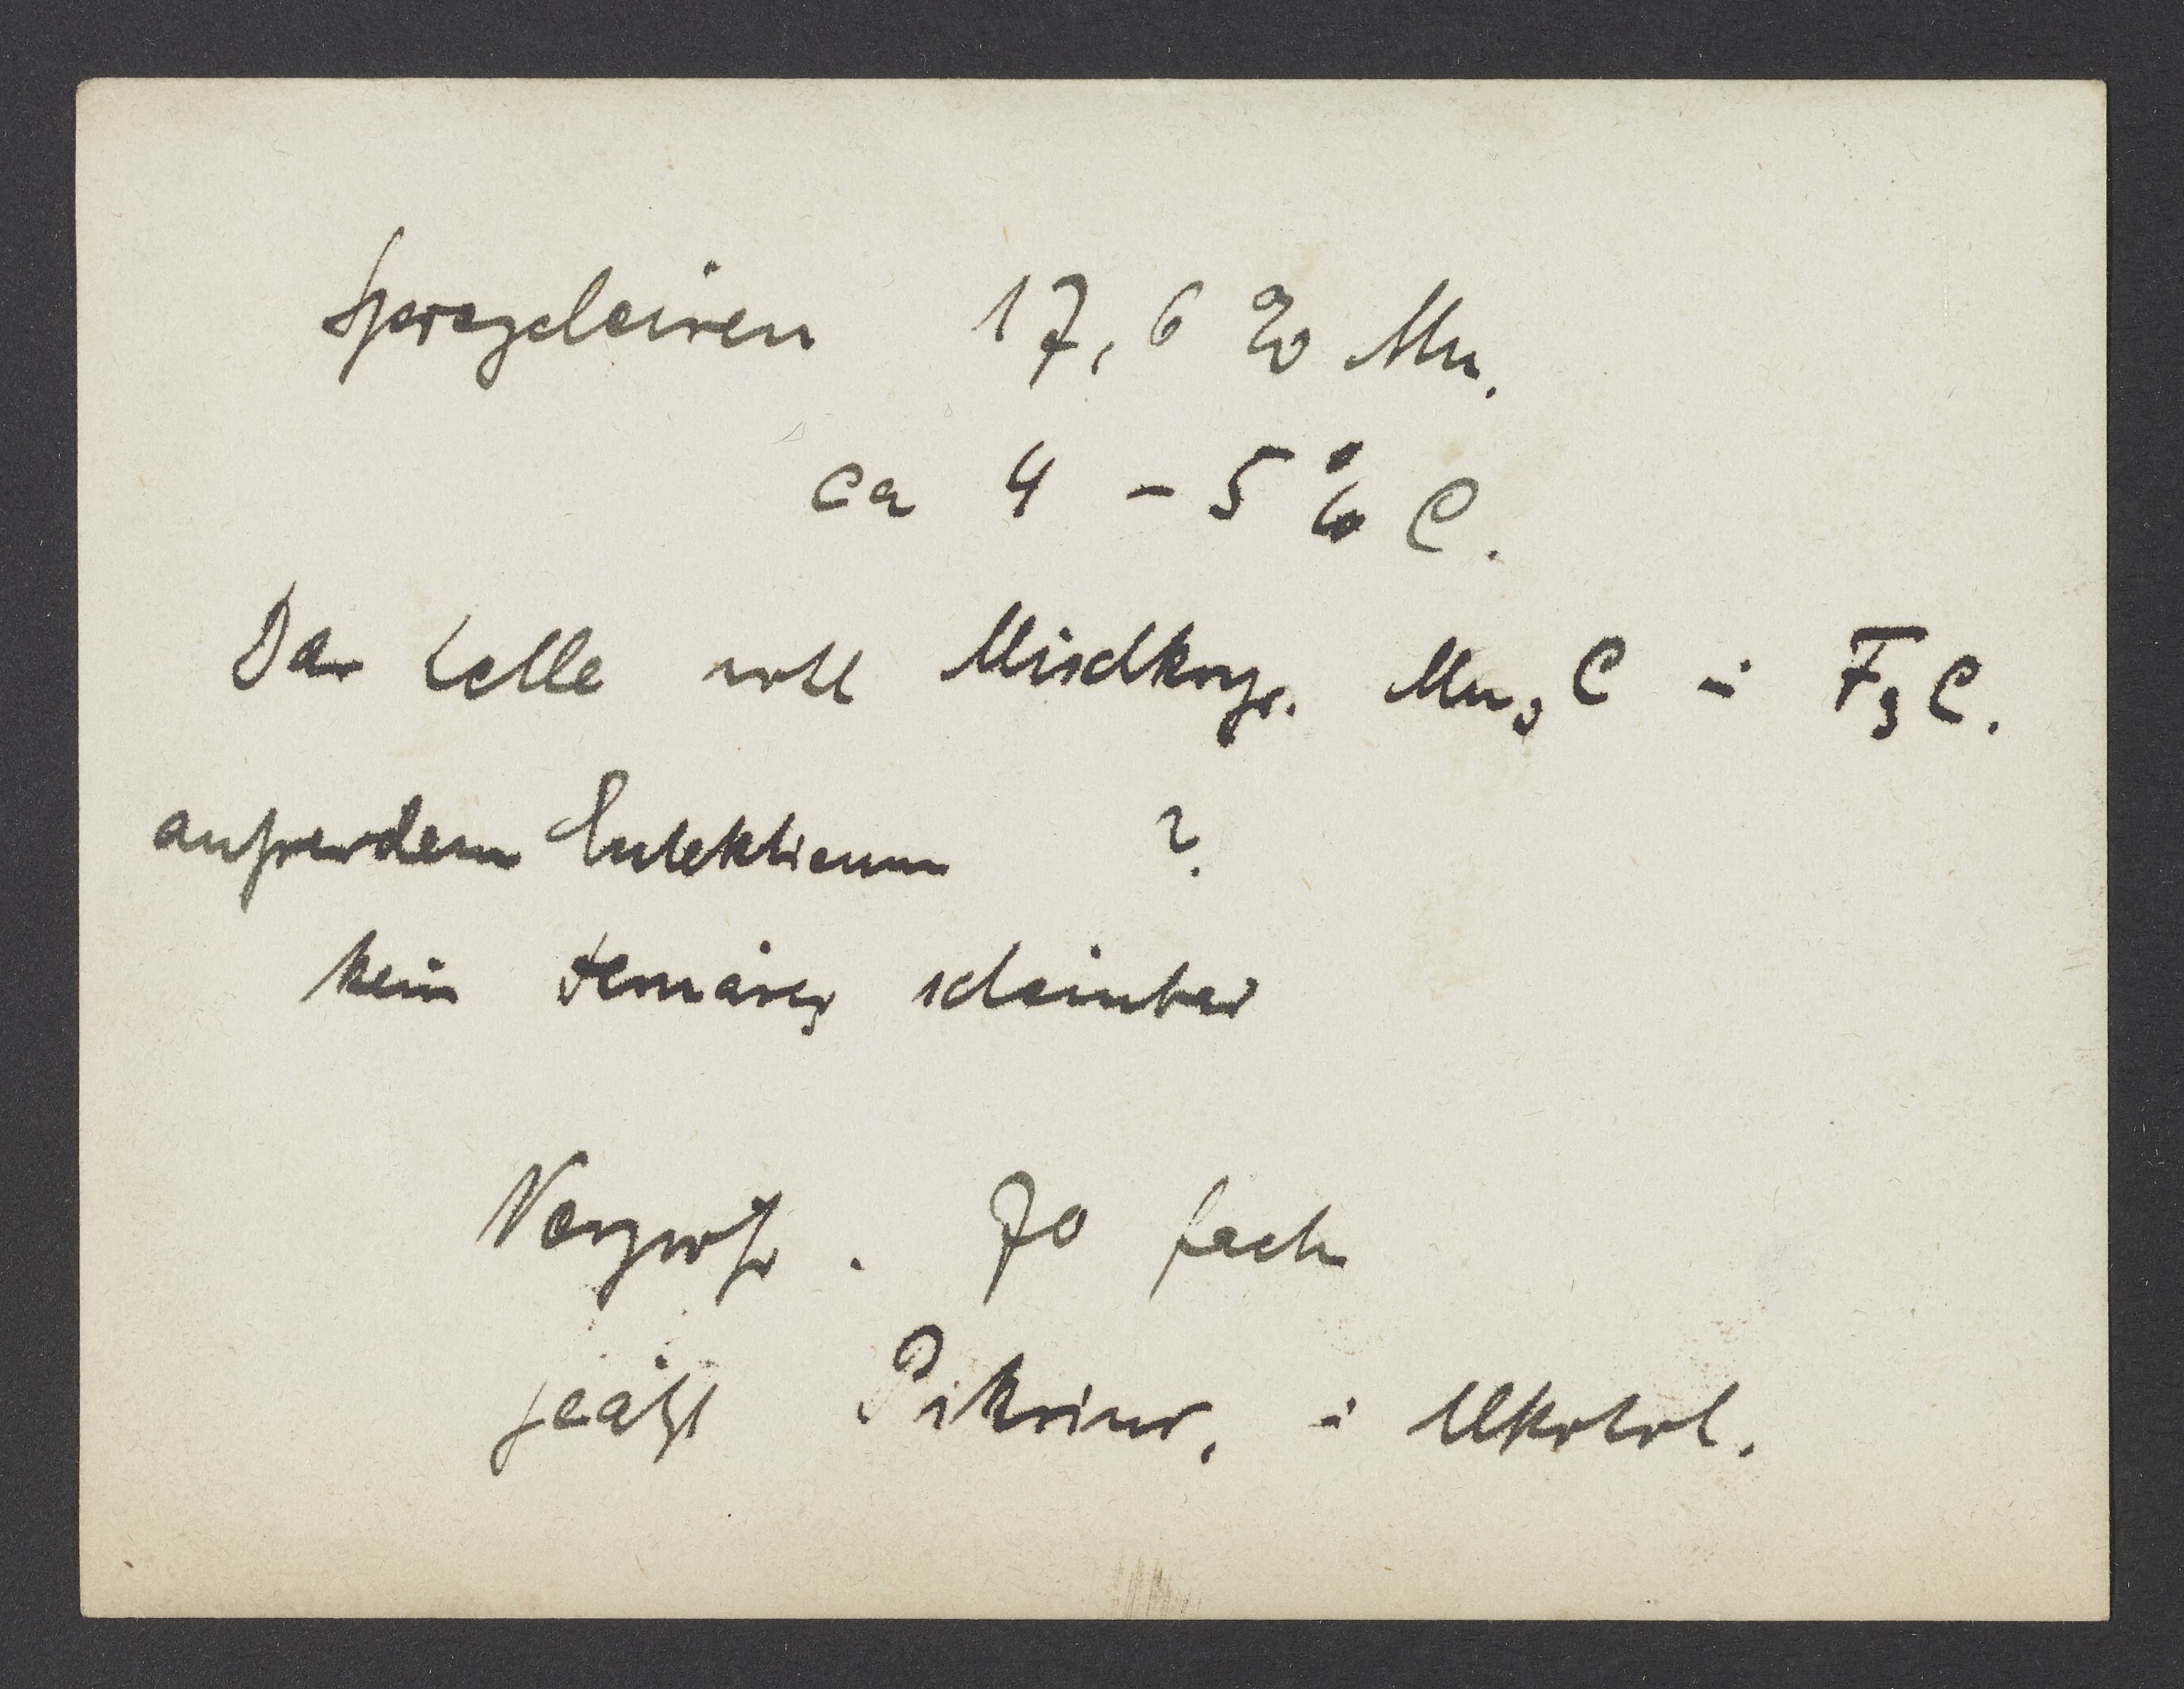 Spiegeleisen 17,6 % Mn.
ca 4 – 5 % C.
Das helle wohl Mischkryst. Mn₃C i F₃C.
außerdem Eutekticum ?
kein ternäres scheinbar
Vergröß. 70 fach
geätzt Pikrins. i Alkohol.